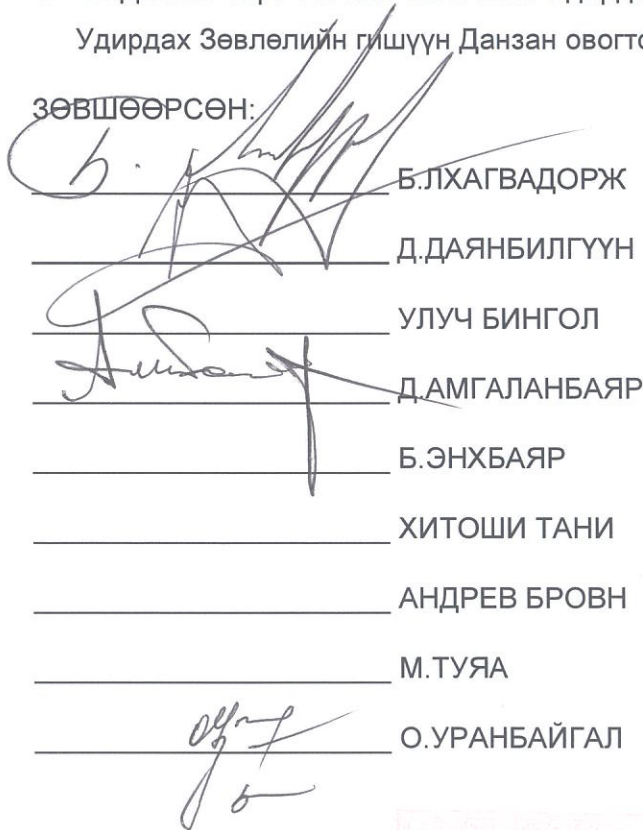 Удирдах Зөвлөлийн гишүүн Данзан овогто
ЗӨВШӨӨРСӨН:
Б.ЛХАГВАДОРЖ
Д.ДАЯНБИЛГҮҮН
УЛУЧ БИНГОЛ
Д.АМГАЛАНБАЯР
Б.ЭНХБАЯР
ХИТОШИ ТАНИ
АНДРЕВ БРОВН
М.ТУЯА
О.УРАНБАЙГАЛ